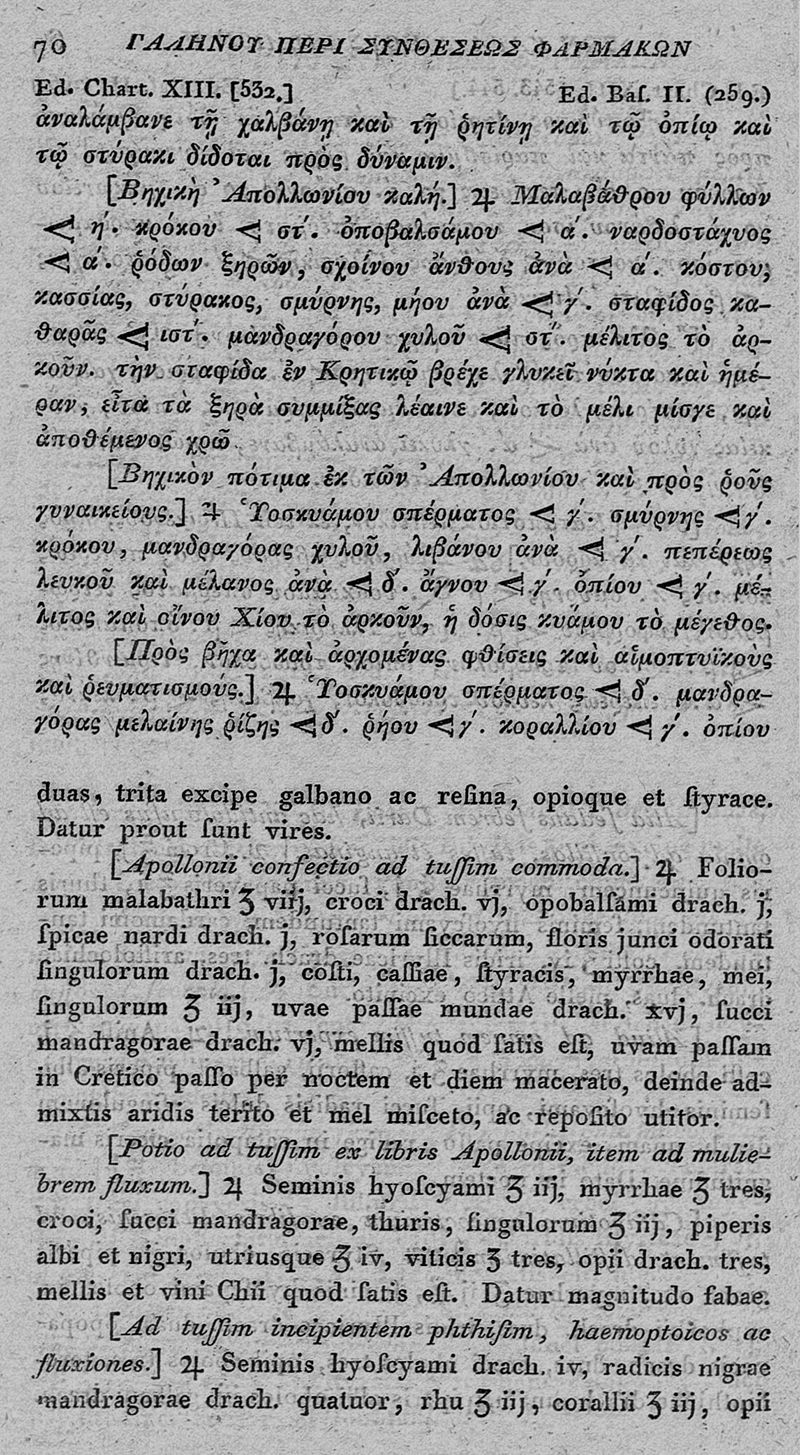 70 ΓΑΛΗΝΟΥ ΠΕΡΙ ΣΥΝΘΕΣΕΩΣ ΦΑΡΜΑΚΩΝ
Ed. Chart. XIII. [532.] Ed. Baſ. II. (259.)
ἀναλάμβανε τῇ χαλβάνῃ καὶ τῇ ῥητίνῃ καὶ τῷ ὀπίῳ καὶ
τῷ στύρακι δίδοται πρὸς δύναμιν.
[Βηχικὴ Ἀπολλωνίου καλή.] ♃ Μαλαβάθρου φύλλων
⋖ η΄. κρόκου ⋖ στ΄. ὀποβαλσάμου ⋖ α΄. ναρδοστάχυος
⋖ α΄. ῥόδων ξηρῶν, σχοίνου ἄνθους ἀνὰ ⋖ α΄. κόστου,
κασσίας, στύρακος, σμύρνης, μήου ἀνὰ ⋖ γ΄. σταφίδος κα-
θαρᾶς ⋖ ιστ΄. μανδραγόρου χυλοῦ ⋖ στ΄. μέλιτος τὸ ἀρ-
κοῦν. τὴν σταφίδα ἐν Κρητικῷ βρέχε γλυκεῖ νύκτα καὶ ἡμέ-
ραν, εἶτα τὰ ξηρὰ συμμίξας λέαινε καὶ τὸ μέλι μίσγε καὶ
ἀποθέμενος χρῶ.
[Βηχικὸν πότιμα ἐκ τῶν Ἀπολλωνίου καὶ πρὸς ῥοῦς
γυναικείους.] ♃ Ὑοσκυάμου σπέρματος ⋖ γ΄. σμύρνης ⋖ γ΄.
κρόκου, μανδραγόρας χυλοῦ, λιβάνου ἀνὰ ⋖ γ΄. πεπέρεως
λευκοῦ καὶ μέλανος ἀνὰ ⋖ δ΄. ἄγνου ⋖ γ΄. ὀπίου ⋖ γ΄. μέ-
λιτος καὶ οἴνου Χίου τὸ ἀρκοῦν, ἡ δόσις κυάμου τὸ μέγεθος.
[Πρὸς βῆχα καὶ ἀρχομένας φθίσεις καὶ αἱμοπτυϊκοὺς
καὶ ῥευματισμούς.] ♃ Ὑοσκυάμου σπέρματος ⋖ δ΄. μανδρα-
γόρας μελαίνης ῥίζης ⋖ δ΄. ῥήου ⋖ γ΄. κοραλλίου ⋖ γ΄. ὀπίου
duas, trita excipe galbano ac reſina, opioque et ſtyrace.
Datur prout ſunt vires.
[Apollonii confectio ad tuſſim commoda.] ♃ Folio-
rum malabathri ʒ viij, croci drach. vj, opobalſami drach. j,
ſpicae nardi drach. j, roſarum ſiccarum, floris junci odorati
ſingulorum drach. j, coſti, caſſiae, ſtyracis, myrrhae, mei,
ſingulorum ʒ iij, uvae paſſae mundae drach. xvj, ſucci
mandragorae drach. vj, mellis quod ſatis eſt, uvam paſſam
in Cretico paſſo per noctem et diem macerato, deinde ad-
mixtis aridis terito et mel miſceto, ac repoſito utitor.
[Potio ad tuſſim ex libris Apollonii, item ad mulie-
brem fluxum.] ♃ Seminis hyoſcyami ʒ iij, myrrhae ʒ tres,
croci, ſucci mandragorae, thuris, ſingulorum ʒ iij, piperis
albi et nigri, utriusque ʒ iv, viticis ʒ tres, opii drach. tres,
mellis et vini Chii quod ſatis eſt. Datur magnitudo fabae.
[Ad tuſſim incipientem phthiſim, haemoptoicos ac
fluxiones.] ♃ Seminis hyoſcyami drach. iv, radicis nigrae
mandragorae drach. quatuor, rhu ʒ iij, corallii ʒ iij, opii